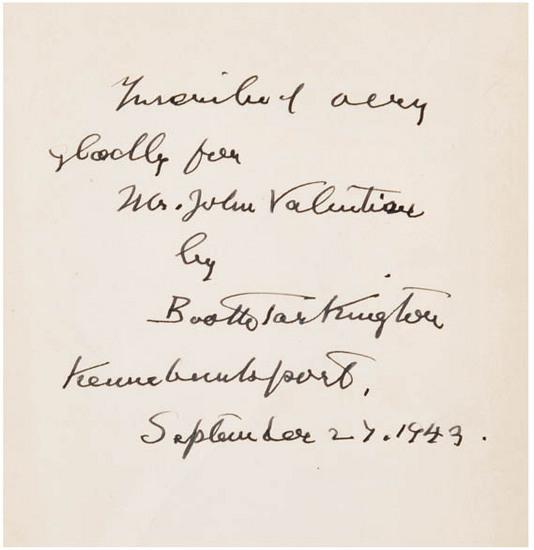 Inscribed very
gladly for
Mr. John Valentine
by
Booth Tarkington
Kennebunkport,
September 27. 1943.